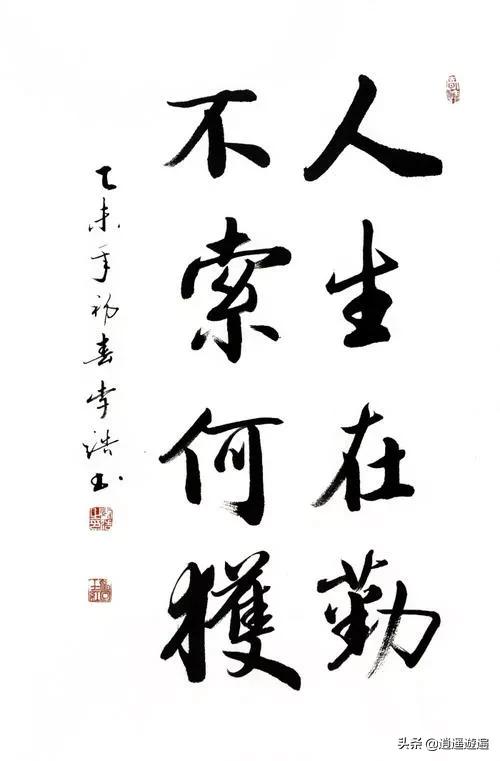 人生在勤
不索何獲
乙未年初春李浩书
头条 @逍遥遊遍